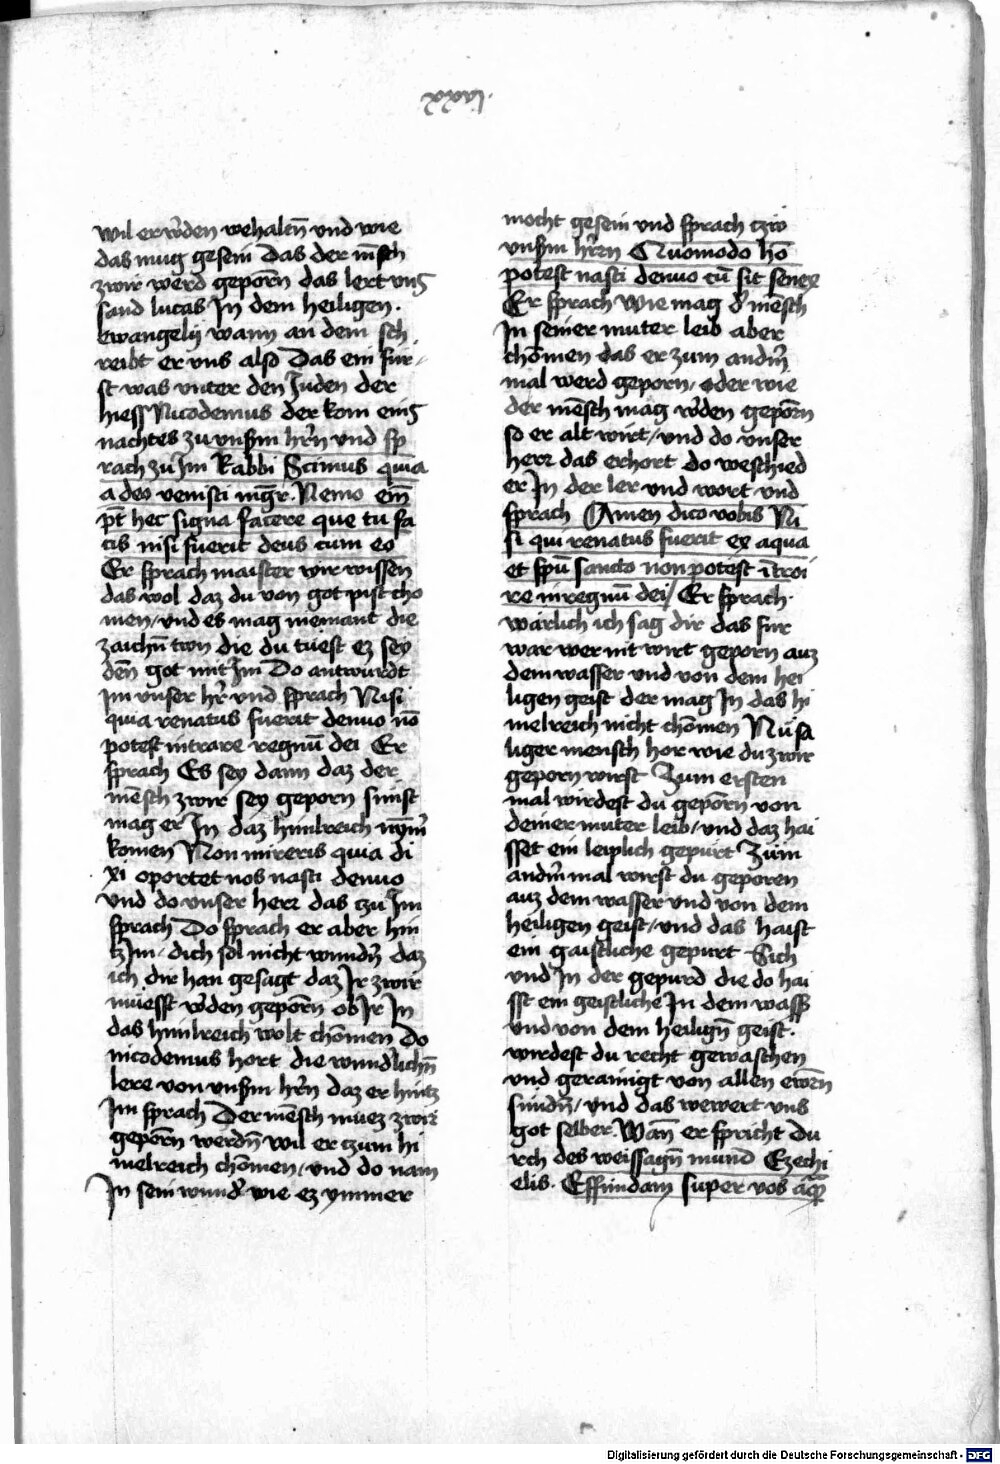 xxvj.
wil erẘden wehaltn̄ und wie
das mug gesein Das der mēsch
zwir werd geporn̄ das lert vns
sand lucas Jn dem heiligen.
Ewangelij wann an dem sch
reibt er vns also Das ein fur⸗
st was vnter den Juden der
hiess Nicodemus der kom eins
nachtes zu vnserm hr̄n vnd sp
rach zu Jm Rabbi Scimus quia
a deo venisti mgr̄. Nemo eīm
pt̄ hec signa facere que tu fa
cis nisi fuerit deus cum eo
Er sprach maister wir wissen
das wol daz du von got pist cho
men/vnd es mag niemant die
zaichn̄ twn die du tuest ez sey
den̄ got mit Jm Do antwurdt
im vnser hr̄ vnd sprach Nisi
quia renatus fuerit denuo nō
potest intrare regnū dei Er
sprach Es sey dann daz der
mēsch zwir sey geporn sunst
mag er Jn daz himlreich nym̄
komen Non mireris quia di
xi oportet nos nasci denuo
vnd do vnser herr das tzu Jm
sprach Do sprach er aber hin
tz Jm/dich sol nicht wundn̄ daz
ich dir han gesagt daz Jr zwir
muesst ẘden geporn̄ ob Jr Jn
das himlreich wolt chōmen Do
nicodemus hort die wund̄lichn̄
lere von vnserm hr̄n daz er hintz
Jm sprach Der mēsch muez zwir
geporn̄ werdn̄ wil er tzum hi
melreich chōmen/vnd do nam
Jn sein wund̄ wie ez ymmer
mocht gesein vnd sprach tzw
vnserm hr̄en Quomodo hō
potest nasci denuo cū sit senex
Er sprach Wie mag d̄ mēsch
Jn seiner muter leib aber
chōmen das er zum andm̄
mal werd geporn/oder wie
der mēsch mag ẘden geporn̄
so er alt wirt/vnd do vnser
herr das erhort do weschied
er Jn der ler vnd wort vnd
sprach Amen dico vobis Ni
si qui renatus fuerit ex aqua
et spū sancto non potest ītroi
re in regnū dei/ Er sprach.
wärlich ich sag dir das fur
war wer nit wirt geporn auz
dem wasser vnd von dem hei
ligen geist der mag Jn das hi
melreich nicht chōmen Nu sa
liger mensch hor wie du zwir
geporn wirst Zum ersten
mal wirdest du geporn̄ von
deiner muter leib/vnd daz hai
sset ein leiplich gepurt Zum
andm̄ mal wirst du geporen
auz dem wasser vnd von dem
heiligen geist/vnd das haist
ein gaistliche gepurt Sich
vnd Jn der gepurd die do hai
sst ein geistliche Jn dem wasser
vnd von dem heilign̄ geist.
wirdest du recht gewaschen
vnd gerainigt von allen ewēn
sündn̄/vnd das wewert vns
got selber. Wan̄ er spricht du
rch des weissagn̄ mund Ezechi
elis. Effundam super vos aq̄
Digitalisierung gefördert durch die Deutsche Forschungsgemeinschaft - DFG